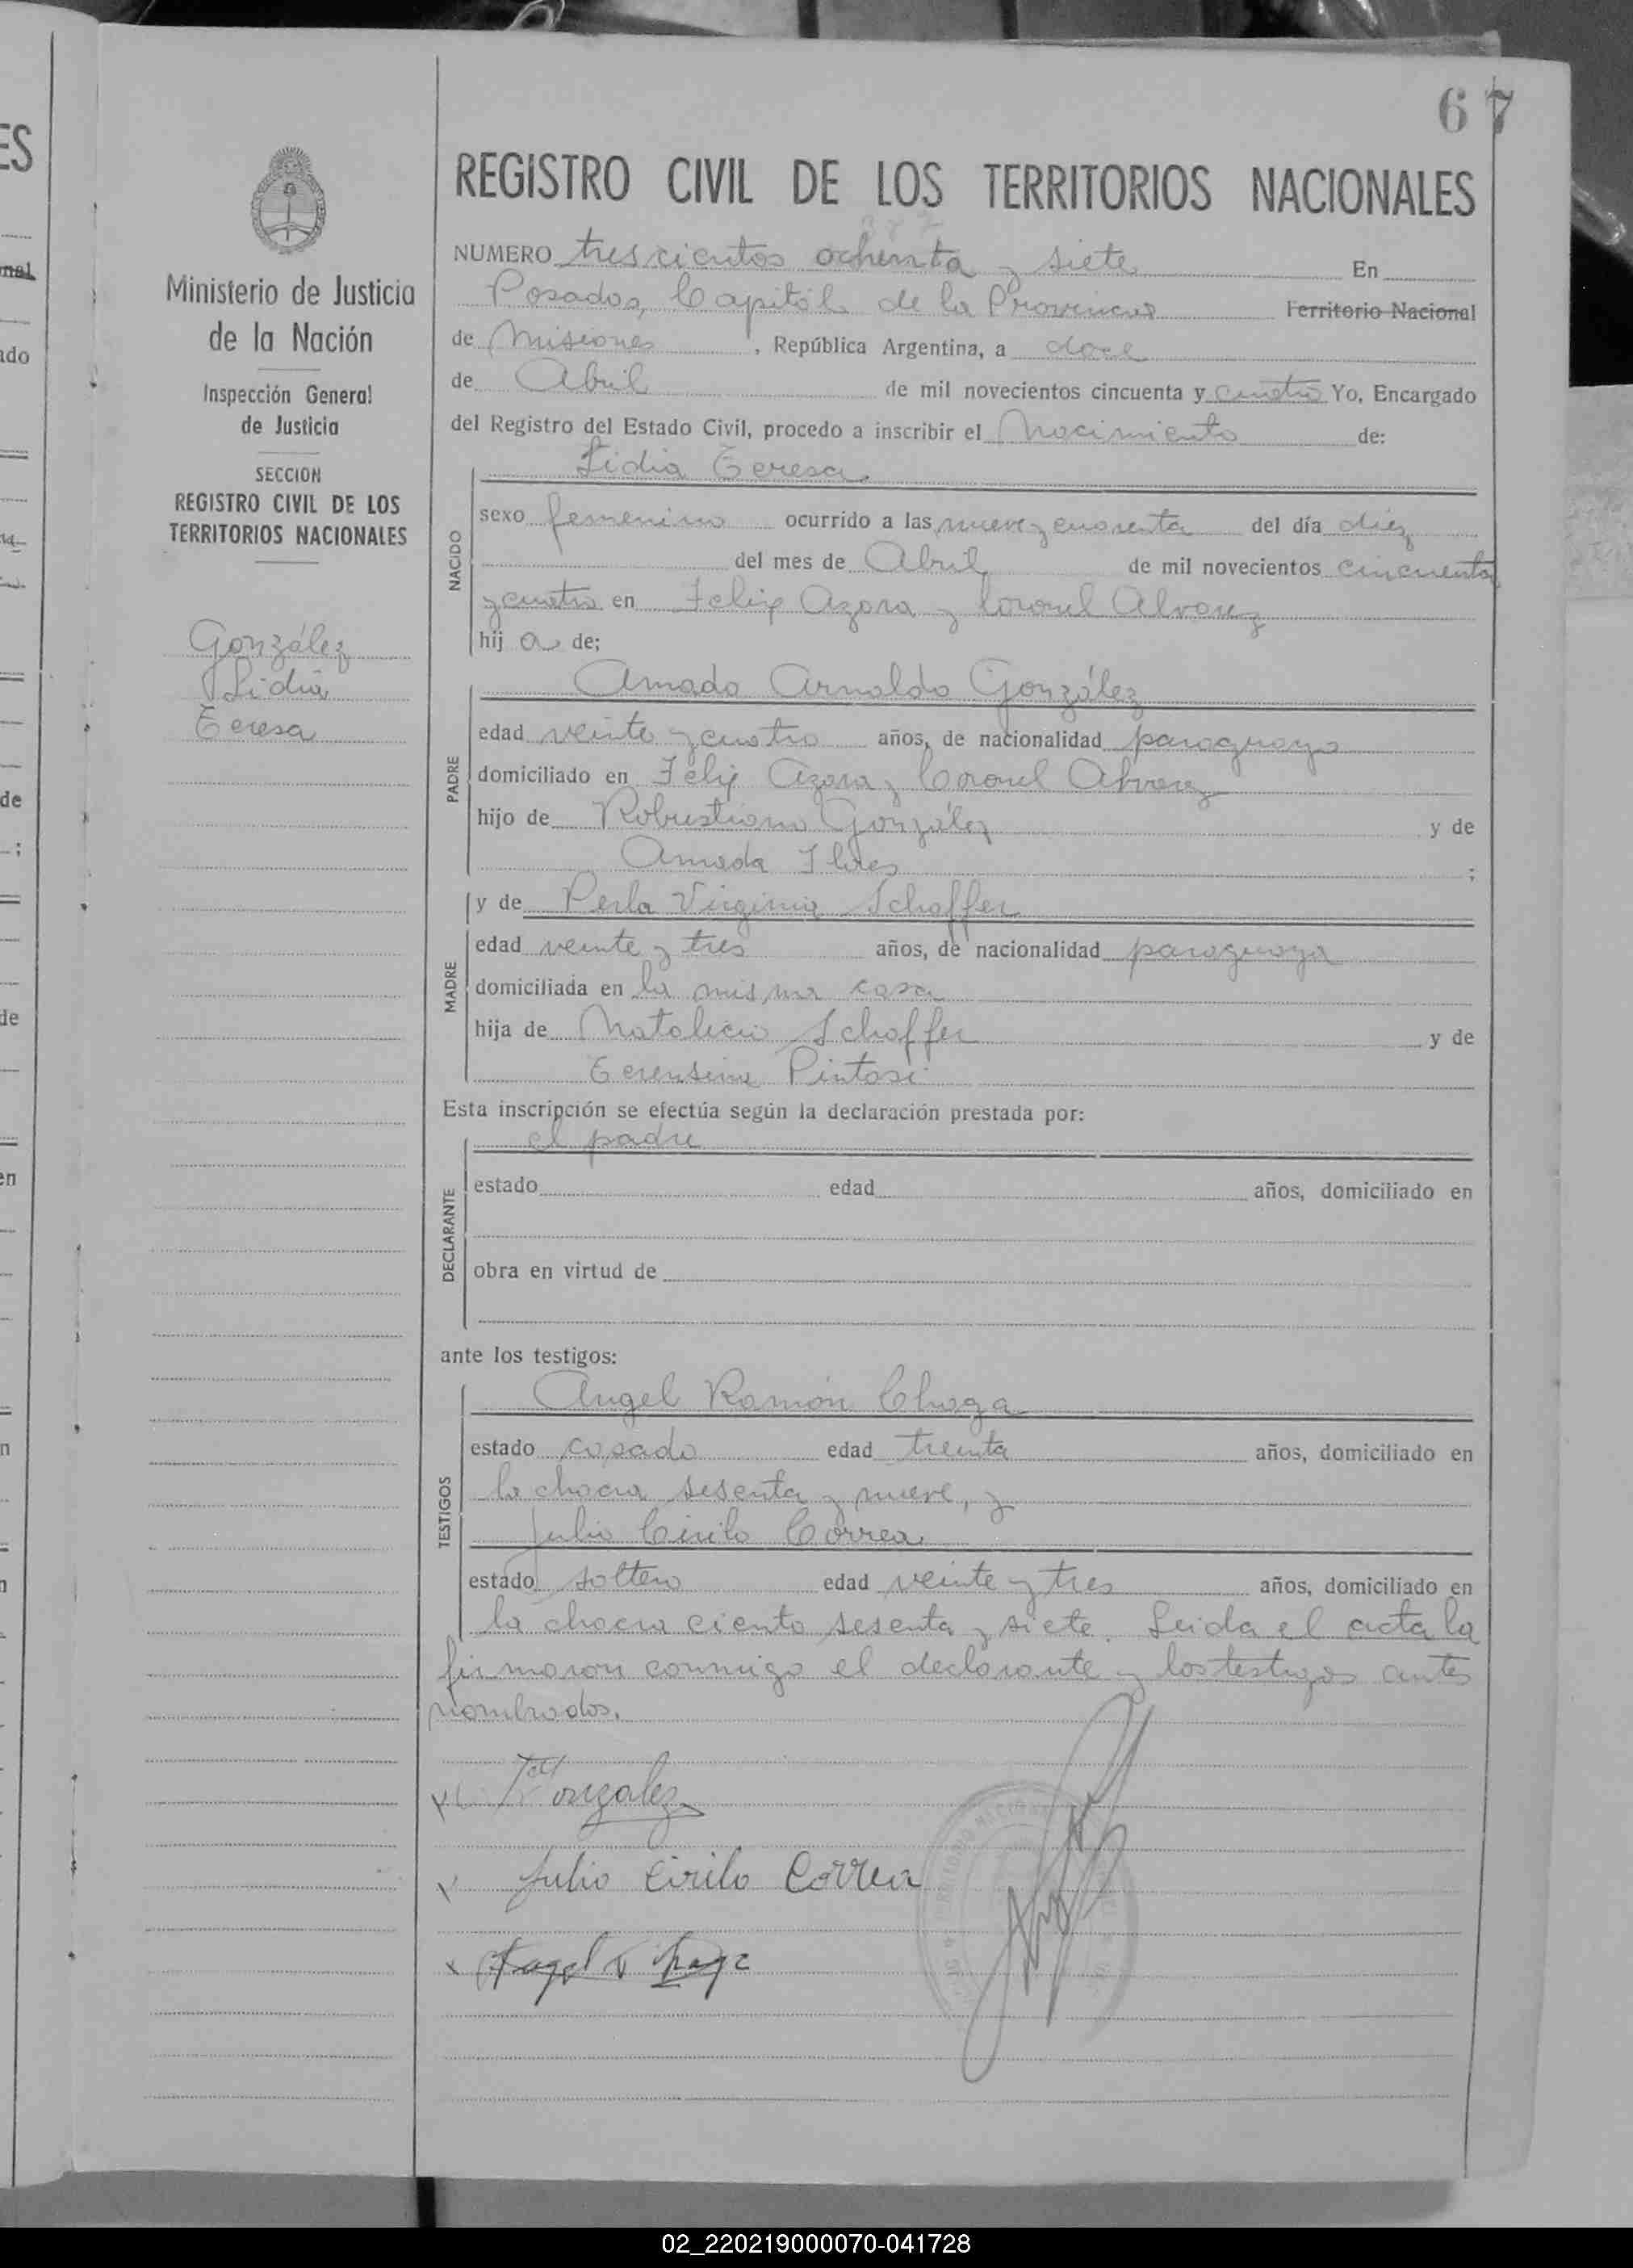 67
REGISTRO CIVIL DE LOS TERRITORIOS NACIONALES
387
NUMERO trescientos ochenta y siete En
Posadas, Capital de la Provincia Territorio Nacional
de Misiones, República Argentina, a doce
de Abril de mil novecientos cincuenta y cuatro Yo, Encargado
del Registro del Estado Civil, procedo a inscribir el Nacimiento de:
Lidia Teresa
NACIDO
sexo femenino ocurrido a las nueve y cuarenta del día diez
del mes de Abril de mil novecientos cincuenta
y cuatro en Felix Azara y Coronel Alvarez
hij a de;
PADRE
Amado Arnaldo González
edad veinte y cuatro años, de nacionalidad paraguayo
domiciliado en Felix Azara y Coronel Alvarez
hijo de Robustiano González y de
Amada ;
MADRE
y de Perla Virginia Schaffer
edad veinte y tres años, de nacionalidad paraguaya
domiciliada en la misma casa
hija de Natalicio Schaffer y de
Pintasi
Esta inscripción se efectúa según la declaración prestada por:
DECLARANTE
el padre
estado edad años, domiciliado en
obra en virtud de
ante los testigos:
TESTIGOS
Angel Ramón Chaga
estado casado edad treinta años, domiciliado en
la chacra sesenta y nueve, y
Julio Cirilo Correa
estado soltero edad veinte y tres años, domiciliado en
la chacra ciento sesenta y siete. Leida el acta la
firmaron conmigo el declarante y los testigos antes
nombrados.
Gonzalez
Julio Cirilo Correa
Angel R Chaga
Ministerio de Justicia
de la Nación
Inspección General
de Justicia
SECCION
REGISTRO CIVIL DE LOS
TERRITORIOS NACIONALES
González
Lidia
Teresa
02_220219000070-041728